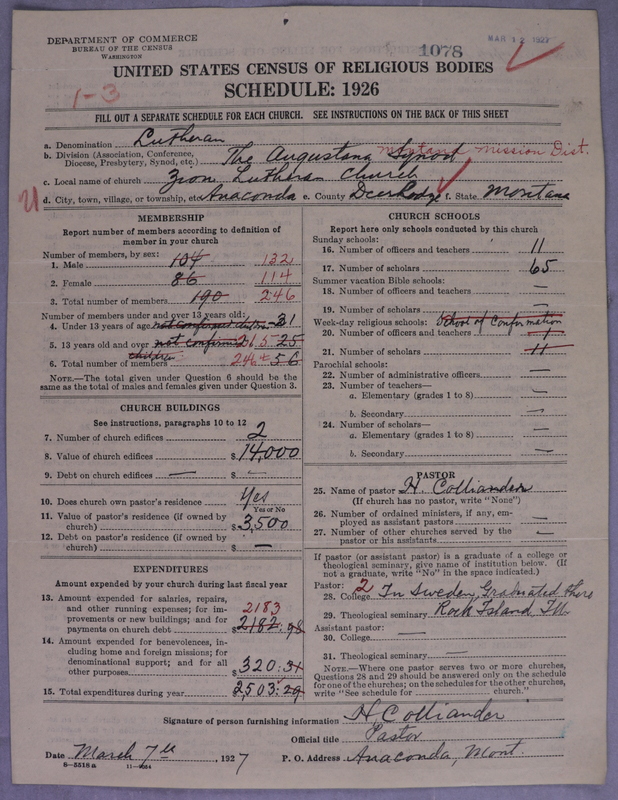 DEPARTMENT OF COMMERCE
BUREAU OF THE CENSUS
WASHINGTON
MAR 12 1927
1078
UNITED STATES CENSUS OF RELIGIOUS BODIES
SCHEDULE: 1926
1-3
FILL OUT A SEPARATE SCHEDULE FOR EACH CHURCH. SEE INSTRUCTIONS ON THE BACK OF THIS SHEET
a. Denomination Lutheran
b. Division (Association, Conference, Diocese, Presbytery, Synod, etc.) The Augustana Synod Mission Dist.
c. Local name of church Zion Lutheran Church
d. City, town, village, or township, etc. Anaconda e. County Deer Lodge f. State Montana
MEMBERSHIP
Report number of members according to definition of
member in your church
Number of members, by sex:
1. Male 104 132
2. Female 86 114
3. Total number of members 190 246
Number of members under and over 13 years old:
4. Under 13 years of age not confirmed 31
5. 13 years old and over not confirmed children 215 25
6. Total number of members 246 56
NOTE.—The total given under Question 6 should be the
same as the total of males and females given under Question 3.
CHURCH BUILDINGS
See instructions, paragraphs 10 to 12
7. Number of church edifices 2
8. Value of church edifices $14,000
9. Debt on church edifices — $ -
10. Does church own pastor's residence Yes
Yes or No
11. Value of pastor's residence (if owned by
church) $3,500
12. Debt on pastor's residence (if owned by
church) $ —
EXPENDITURES
Amount expended by your church during last fiscal year
13. Amount expended for salaries, repairs,
and other running expenses; for im-
provements or new buildings; and for
payments on church debt 2183 $2182.98
14. Amount expended for benevolences, in-
cluding home and foreign missions; for
denominational support; and for all
other purposes $320.31
15. Total expenditures during year $2,503.29
CHURCH SCHOOLS
Report here only schools conducted by this church
Sunday schools:
16. Number of officers and teachers 11
17. Number of scholars 65
Summer vacation Bible schools:
18. Number of officers and teachers —
19. Number of scholars —
Week-day religious schools: School of Confirmation
20. Number of officers and teachers 1
21. Number of scholars 11
Parochial schools:
22. Number of administrative officers —
23. Number of teachers—
a. Elementary (grades 1 to 8) —
b. Secondary —
24. Number of scholars—
a. Elementary (grades 1 to 8) —
b. Secondary —
PASTOR
25. Name of pastor H. Colliander
(If church has no pastor, write "None")
26. Number of ordained ministers, if any, em-
ployed as assistant pastors —
27. Number of other churches served by the
pastor or his assistants —
If pastor (or assistant pastor) is a graduate of a college or
theological seminary, give name of institution below. (If
not a graduate, write "No" in the space indicated.)
Pastor:
28. College 2 In Sweden, Graduated there
29. Theological seminary Rock Island, Ill.
Assistant pastor:
30. College —
31. Theological seminary —
NOTE.—Where one pastor serves two or more churches,
Questions 28 and 29 should be answered only on the schedule
for one of the churches; on the schedules for the other churches,
write "See schedule for church."
Signature of person furnishing information H Colliander
Official title Pastor
Date March 7th 1927 P. O. Address Anaconda, Mont.
8-5518 a